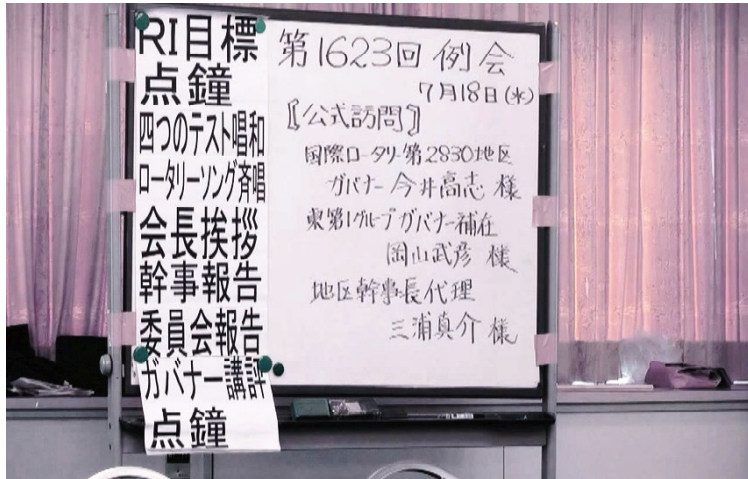 RI目標
点鐘
四つのテスト唱和
ロータリーソング斉唱
会長挨拶
幹事報告
委員会報告
ガバナー講評
点鐘
第1623回 例会
7月18日(水)
〖公式訪問〗
国際ロータリー第2830地区
ガバナー 今井高志 様
東第1グループガバナー補佐
岡山武彦 様
地区幹事長代理
三浦真介 様